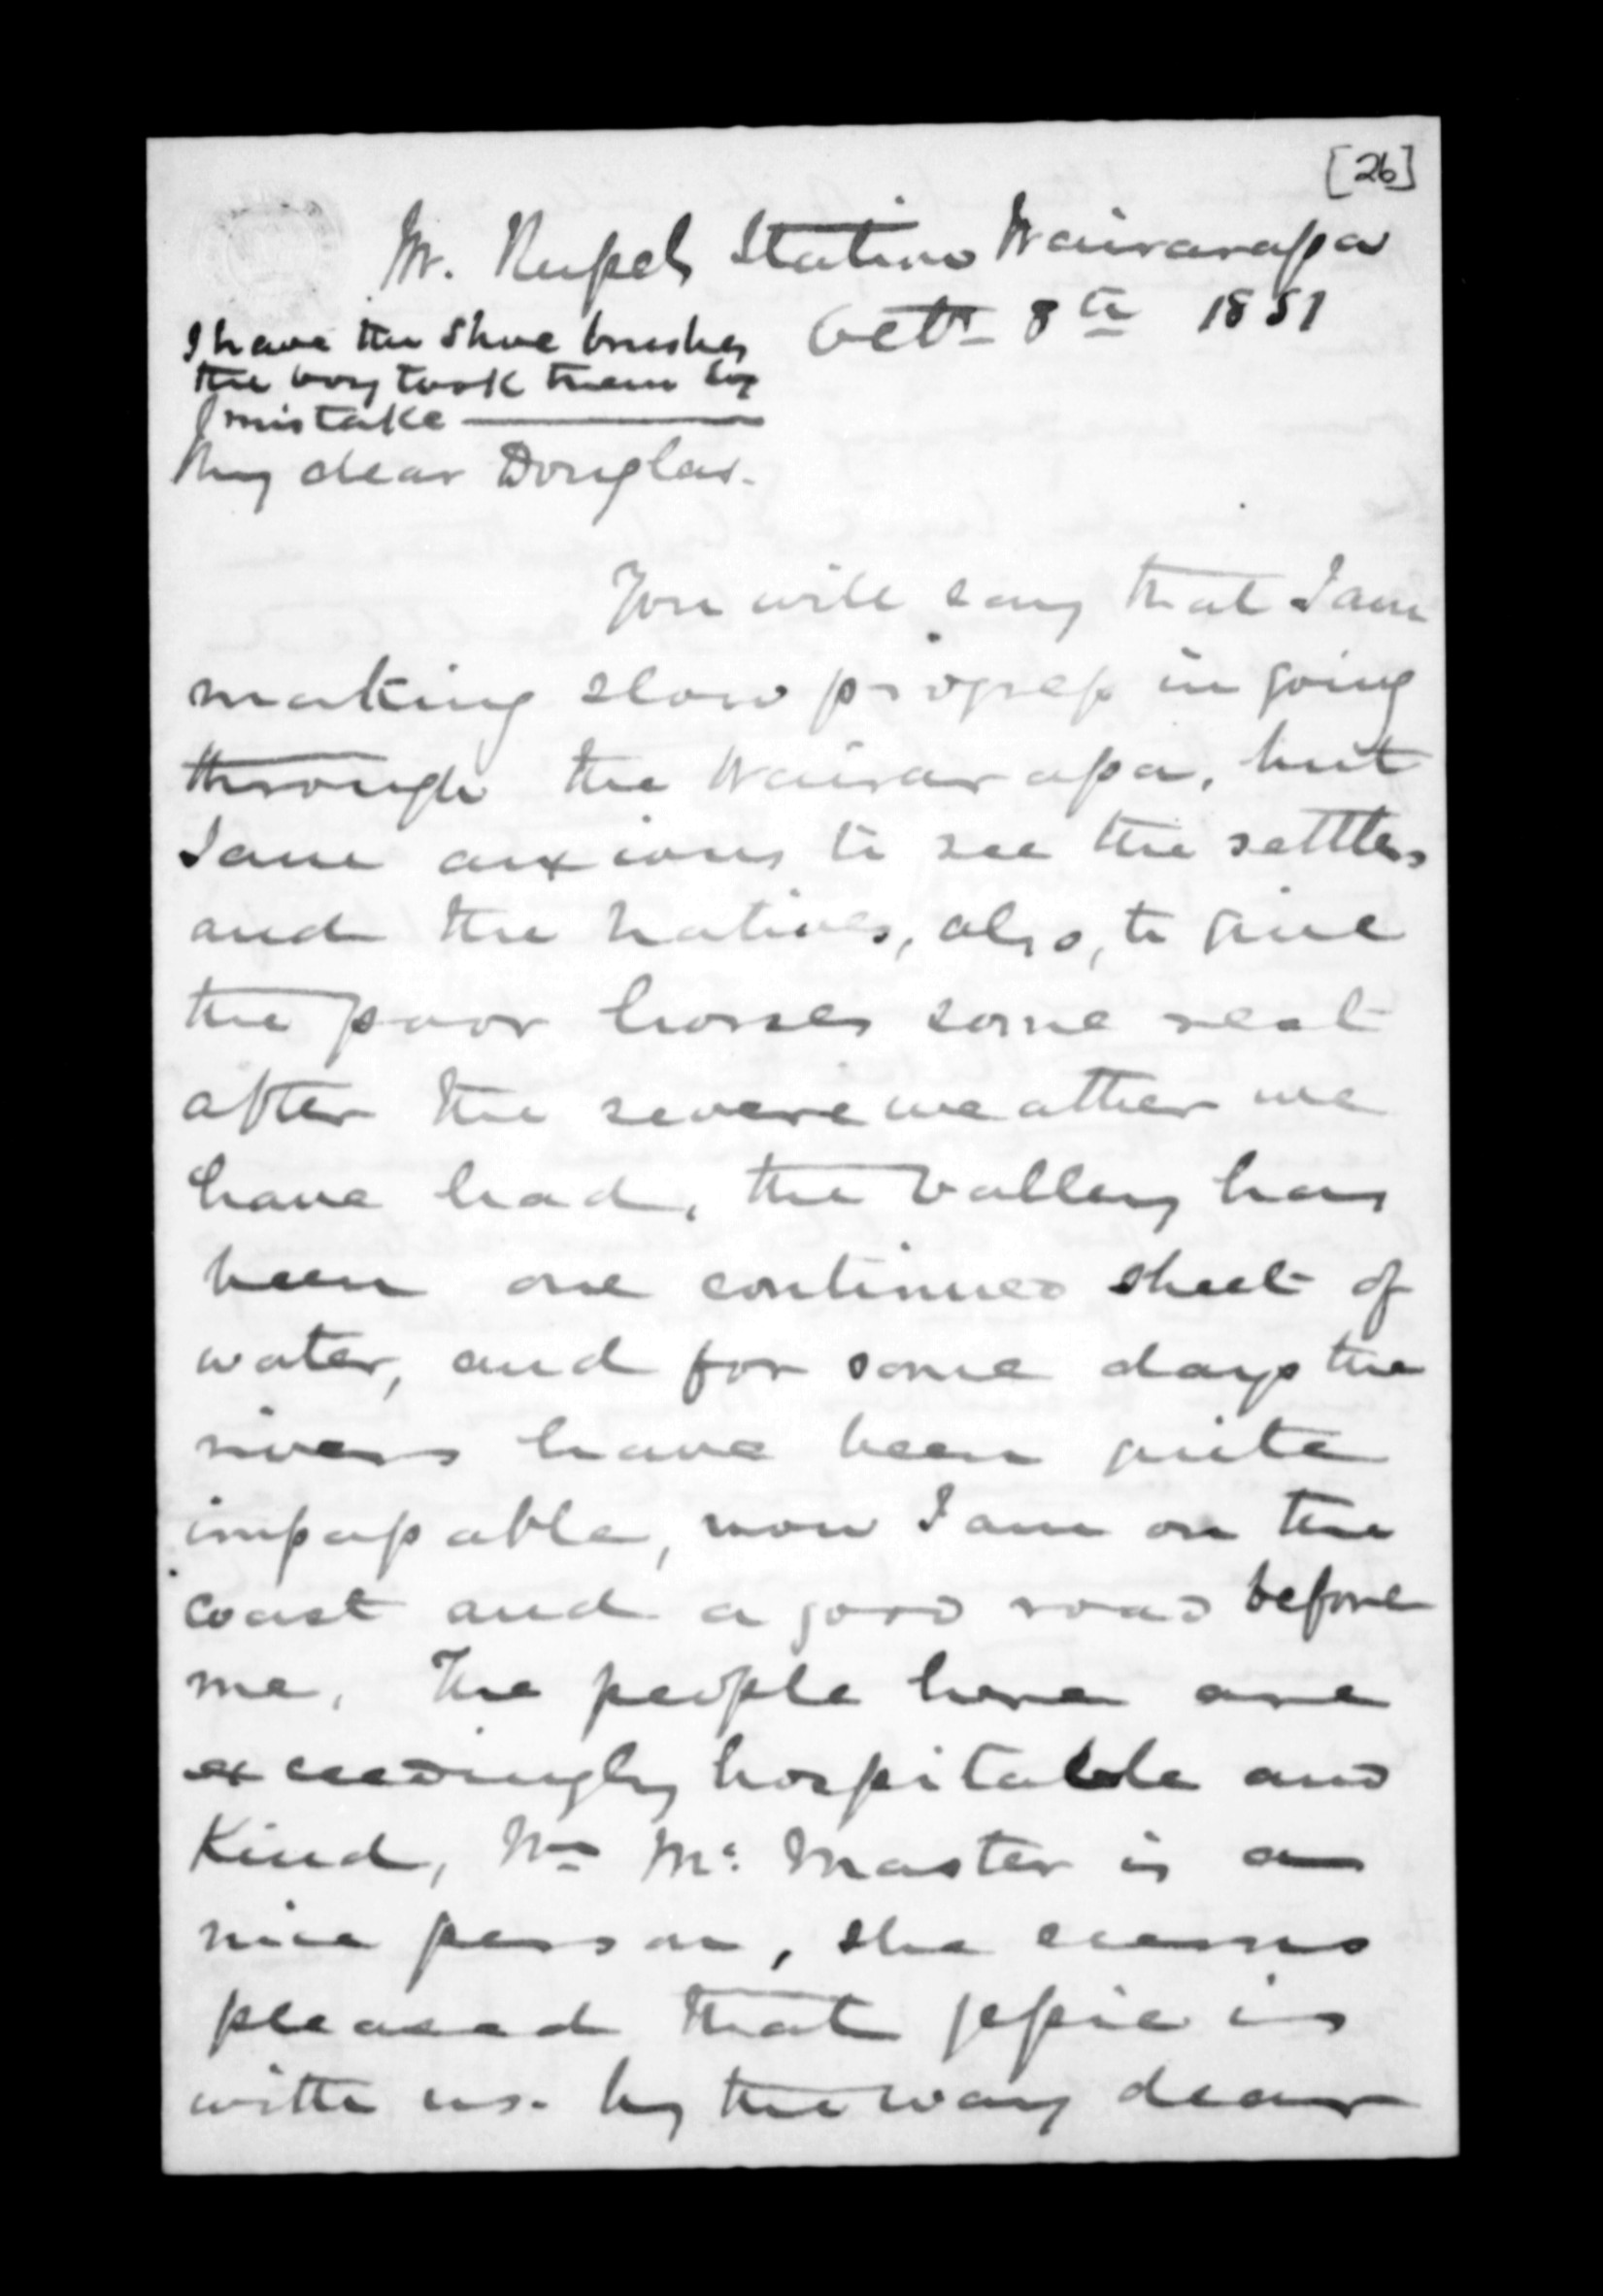 [26]
Mr. Russels Station Wairarapa
Octr 8th 1851
I have the shoe brushes
the boy took them by
mistake
My dear Douglas.
You will say that I am
making slow progress in going
through the Wairarapa, but
I am anxious to see the settlers
and the natives, also, to give
the poor horses some rest
after the severe weather we
have had, the valley has
been one continued sheet of
water, and for some days the
rivers have been quite
impassable, now I am on the
coast and a good road before
me. The people here are
exceedingly hospitable and
kind, Mrs Mc. Master is a
nice person, she seems
pleased that is
with us. by the way dear